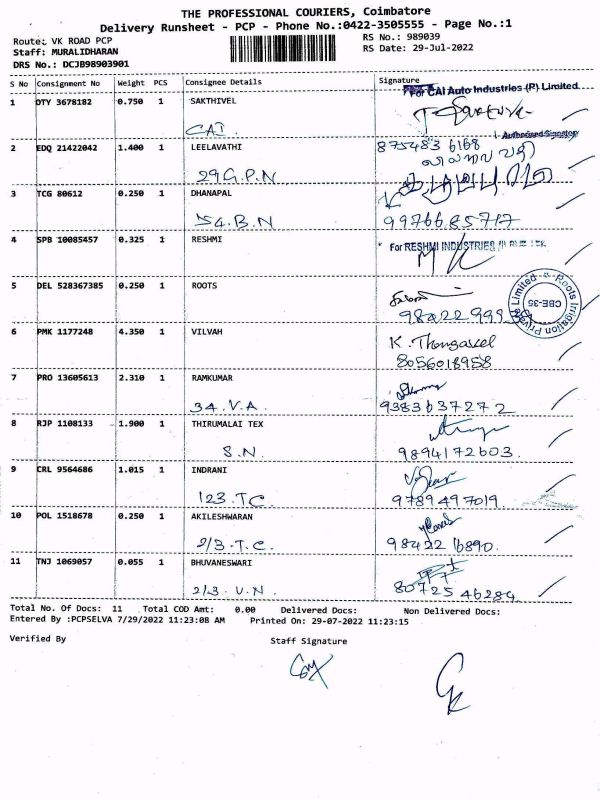 THE PROFESSIONAL COURIERS, Coimbatore
Delivery Runsheet - PCP - Phone No.:0422-3505555 - Page No.:1
Route: VK ROAD PCP
RS No.: 989039
Staff: MURALIDHARAN
RS Date: 29-Jul-2022
DRS No.: DCJB98903901
S No Consignment No Weight PCS Consignee Details Signature
For CAI Auto Industries (P) Limited
1 DTY 3678182 0.750 1 SAKTHIVEL
CAI.
Authorised Signatory
2 EDQ 21422042 1.400 1 LEELAVATHI 875483 6168
29 G.P.N
3 TCG 80612 0.250 1 DHANAPAL
54.B.N 9976685717
4 SPB 10085457 0.325 1 RESHMI For RESHMI INDUSTRIES
5 DEL 528367385 0.250 1 ROOTS
Roots Irrigation Private Limited
CBE-35
6 PMK 1177248 4.350 1 VILVAH K. Thangavel
8056018958
7 PRO 13605613 2.310 1 RAMKUMAR
34.V.A. 9383637272
8 RJP 1108133 1.900 1 THIRUMALAI TEX
S.N 9894172603.
9 CRL 9564686 1.015 1 INDRANI
123.T.C. 9789497019
10 POL 1518678 0.250 1 AKILESHWARAN
2/3.T.C. 98422 16890.
11 TNJ 1069057 0.055 1 BHUVANESWARI
2/3.V.N. 80725 46284
Total No. Of Docs: 11 Total COD Amt: 0.00 Delivered Docs: Non Delivered Docs:
Entered By :PCPSELVA 7/29/2022 11:23:08 AM Printed On: 29-07-2022 11:23:15
Verified By Staff Signature